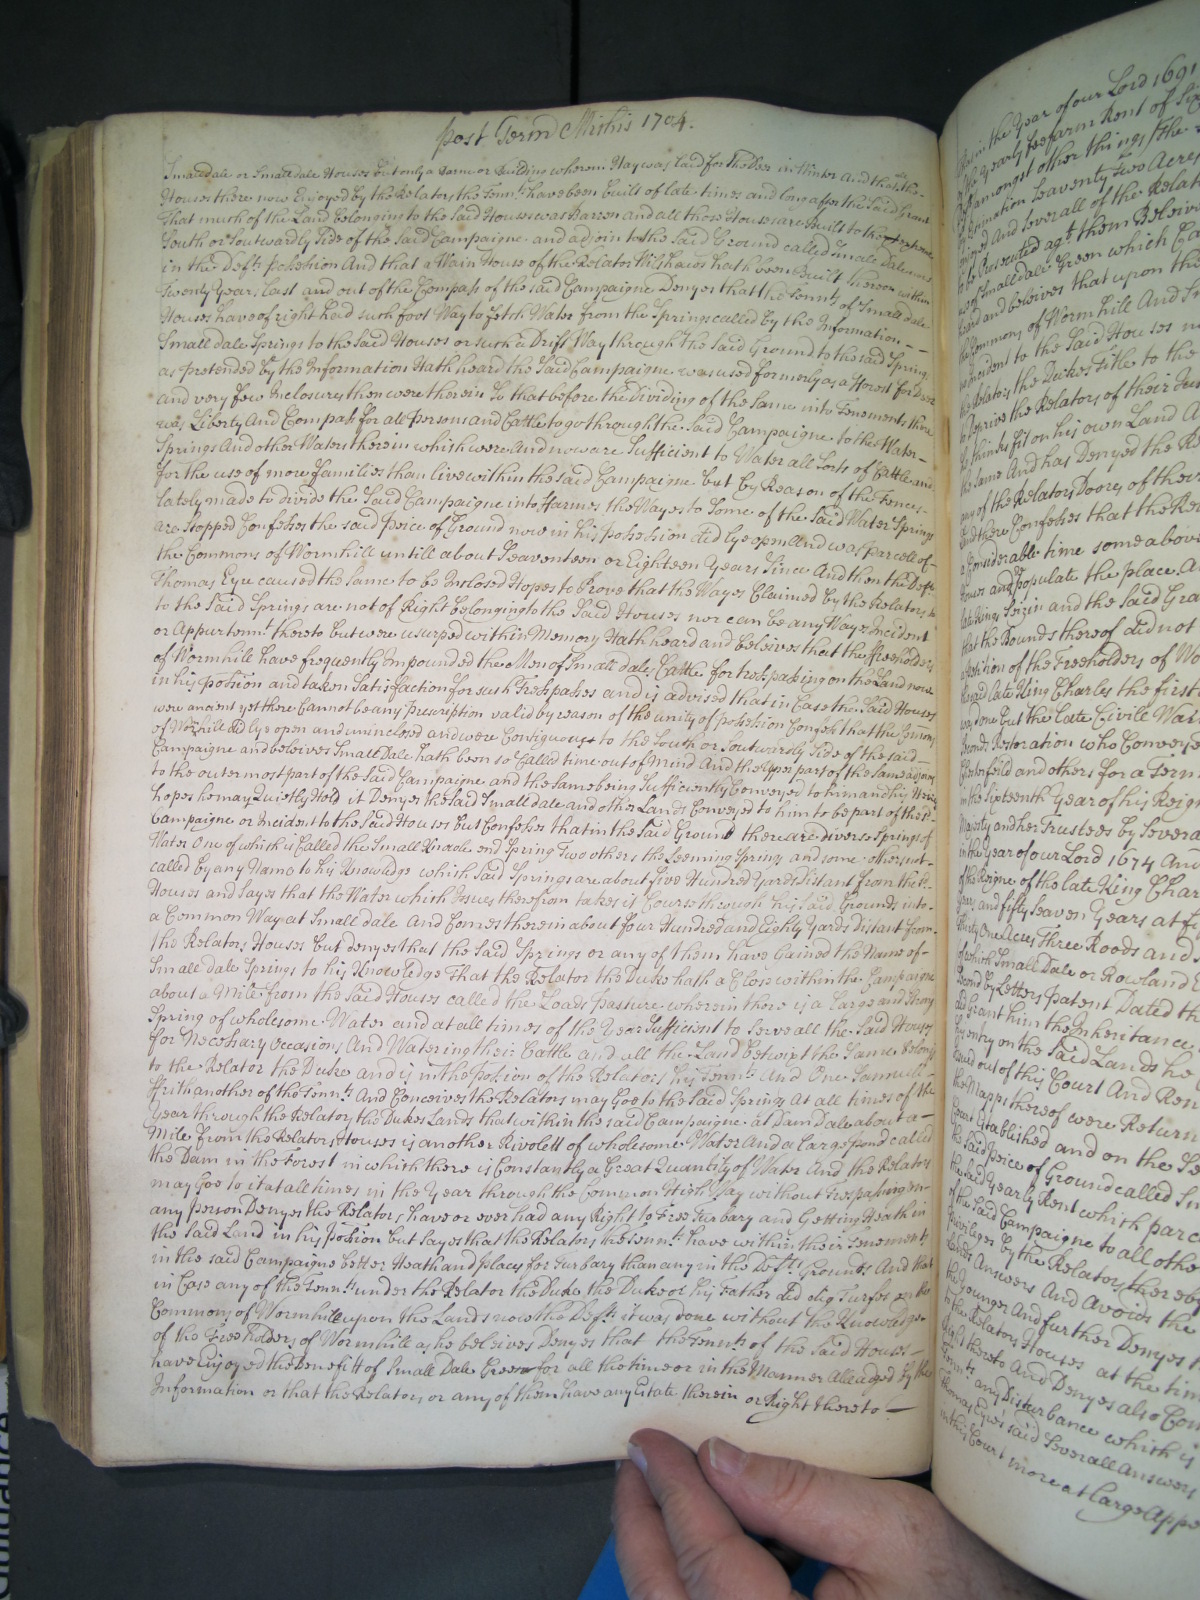 post Term Michis 1704.
Smaledale or Smalldale Houses but only a Barne or Building wherein Hay was laid for the Deer in Winter And that the
Houses there now Enjoyed by the Relators the Tennts. have been built of late times and long after the said Grant
That much of the Land belonging to the said Houses was Barren and all those Houses are Built to the
South or Southwardly Side of the said Campaigne and adjoin to the Said Ground called Smale Dale now
in the Defts. possession And that a Wain House of the Relator hath been Built thereon within
Twenty Years last and out of the Compass of the said Campaigne Denyes that the Tennts. of Smalldale
Houses have of right had such foot Way to fetch Water from the Springs called by the Information
Smalldale Springs to the said Houses or such a Drift Way through the said Ground to the said Springs
as pretended by the Information Hath heard the Said Campaigne was used formerly as a Forest for Deer
and very few Inclosures then were therein So that before the Dividing of the Same into Tenements there
was Liberty And Compass for all Persons and Cattle to go through the Said Campaigne to the Water
Springs And other Waters therein which were And now are Sufficient to Water all Sorts of Cattle and
for the use of more families than live within the said Campaigne but by Reason of the Fences
Lately made to divide the Said Campaigne into Farmes the Wayes to Some of the Said Water Springs
are Stopped Confesses the said peice of Ground now in his possession did lye open And was parcell of
the Commons of Wormhill untill about Seaventeen or Eighteen Years Since And then the Deft.
Thomas Eyre caused the Same to be Inclosed Hopes to Prove that the Wayes Claimed by the Relators
to the Said Springs are not of Right belonging to the Said Houses nor can be any Wayes Incident
or Appurtennt. thereto but were usurped within Memory Hath heard and beleives that the Freeholders
of Wormhill have frequently Impounded the Men of Smalldales Cattle for trespassing on the Land now
in his possion and taken Satisfaction for such Trespasses and is advised that in Case the Said Houses
were ancient yet there Cannot be any Prescription valid by reason of the unity of possession Confess that the Comons
of Wormhill did lye open and uninclosed and were Contiguous to the South or Southwardly Side of the said
Campaigne and beleives Small Dale hath been so Called time out of Mind And the Upper part of the Same adjoins
to the outermost part of the Said Campaigne and the same being Sufficiently Conveyed to him and his Heires
hopes he may Quietly Hold it Denyes the Said Smalldale and other Lands Conveyed to him to be part of the sd.
Campaigne or Incident to the Said Houses but Confesses that in the Said Ground there are diverse Springs of
Water One of which is Called the Small end Spring Two others the Leeming Springs and some others not
called by any Name to his Knowledge which Said Springs are about five Hundred Yards Distant from the Rs.
Houses and Sayes that the Water which Issues therefrom takes it Course through his Said Grounds into
a Common Way at Smalldale And Comes therein about four Hundred and Eighty Yards Distant from
the Relators Houses but denyes that the Said Springs or any of them have Gained the Name of
Smalldale Springs to his Knowledge That the Relator the Duke hath a Close within the Campaigne
about a Mile from the Said Houses called the Loads pasture wherein there is a Large and Strong
Spring of wholesome Water and at all times of the Year Sufficient to Serve all the Said Houses
for Necessary Occasions And Watering their Cattle and all the Land betwixt the Same belongs
to the Relator the Duke and is in the possion of the Relators his Tennts. And One Samuell
Frith another of the Tennts. And Conceives the Relators may Goe to the Said Springs At all times of the
Year through the Relator the Dukes Lands that within the said Campaigne at Dam Dale about a
Mile from the Relators Houses is another Rivolett of wholesome Water And a Large pond called
the Dam in the Forest in which there is Constantly a Great Quantity of Water And the Relators
may Goe to it at all times in the Year through the Common High Way without Trespassing on
any Person Denyes the Relators have or ever had any Right to Free Turbary and Getting Heath in
the Said Land in his possion but Sayes that the Relators the Tennts. have within their Tenements
in the said Campaigne better Heath and places for Turbary than any in the Defts. Grounds And that
in Case any of the Tennts. under the Relator the Duke the Duke or his Father did dig Turfes on the
Commons of Wormhill upon the Lands now the Defts. it was done without the Knowledge
of the Freeholders of Wormhill as he beleives Denyes that the Tennts. of the Said Houses
have Enjoyed the Benefitt of Small Dale Green for all the time or in the Manner Alleadged by the
Information or that the Relators or any of them have any Estate therein or Right thereto
was in the Year of our Lord 1691
the yearly feefarm Rent of Six
amongst other things the
Estimation Seaventy Two Acres
And Severall of the Relat
to be Prosecuted agt. them Beleives
of Smalldale Green which
heard and beleives that upon the
Commons of Wormhill And
to the Said Houses
the Relators the Dukes Title to the
to deprive the Relators of their
thinks fit on his own Land
the Same And has Denyed the
any of the Relators Doores of their
Confesses that the Re
Considerable time some above
and populate the place
late Kings Seizin and the Said Gra
that the Bounds thereof did not
petition of the Freeholders of Wo
late King Charles the first
done but the late Civile War
Seconds Restoration who Conveyed
Chesterfeild and others for a Term
in the Sixteenth Year of his Reign
Majesty and her Trustees by Severa
in the year of our Lord 1674 And
of the Reigne of the late King Char
and fifty seaven Years at
Thirty One Acres Three Roods and
of which Small Dale or Rowland
Second by Letters patent Dated th
Grant him the Inheritance
by entry on the Said Lands he
Issued out of this Court And Ren
the Mapps thereof were Return
Court Established and on the
the Said peice of Ground called Sm
the Said Yearly Rent which parc
of the Said Campaigne to all othe
privileges by the Relators thereby
Lands Answers And Avoids the
the Younger And further Denyes
to the Relators Houses at the tim
Right thereto And Denyes also Com
Tennts. any Disturbance which is
Thomas Eyres said Severall Answers
in this Court more at Large Appe